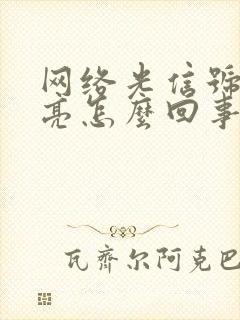 网络光信號
亮怎麼回事
瓦齊尔阿克巴